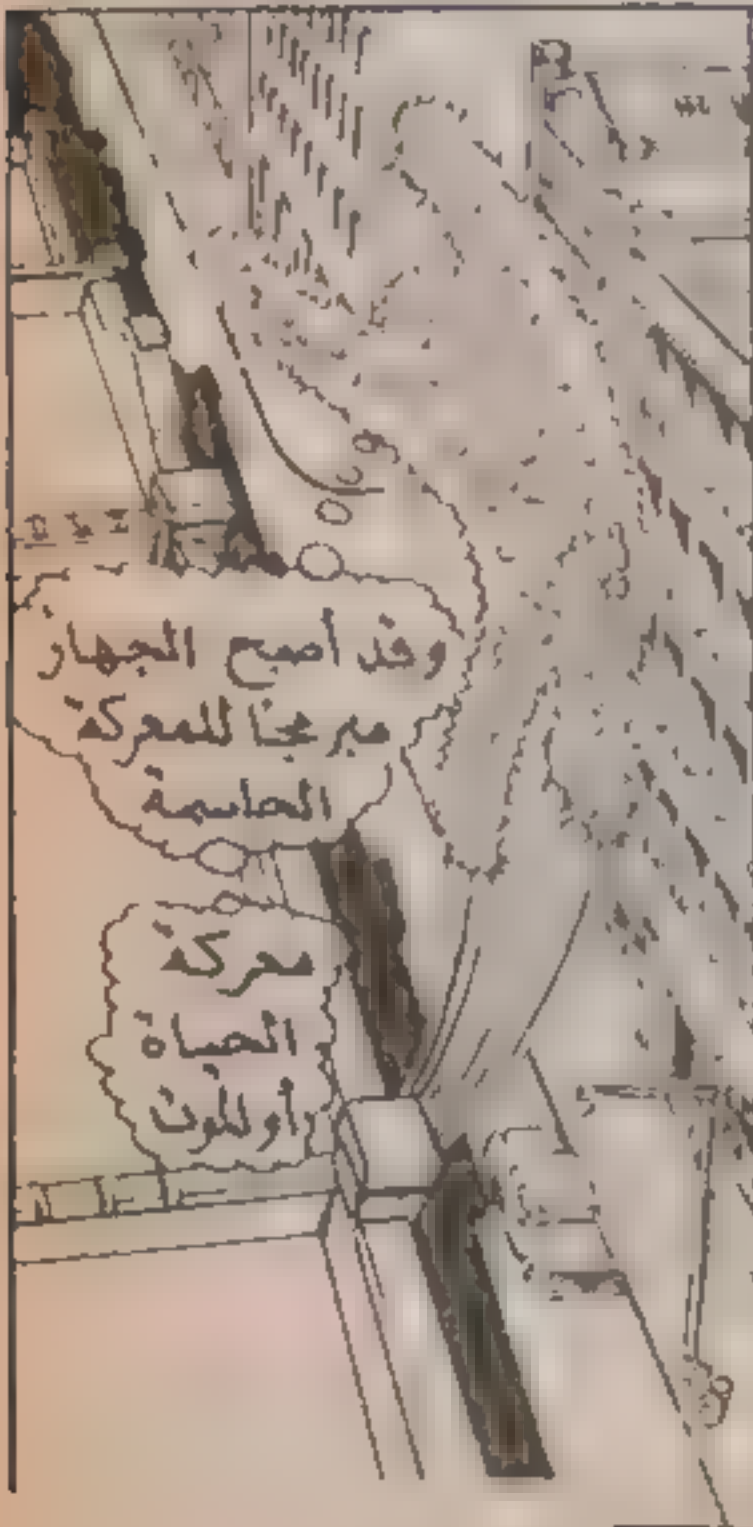 وقد أصبح الجهاز
مبرمجا للمعركة
الحاسمة
معركة
الحياة
أو للموت